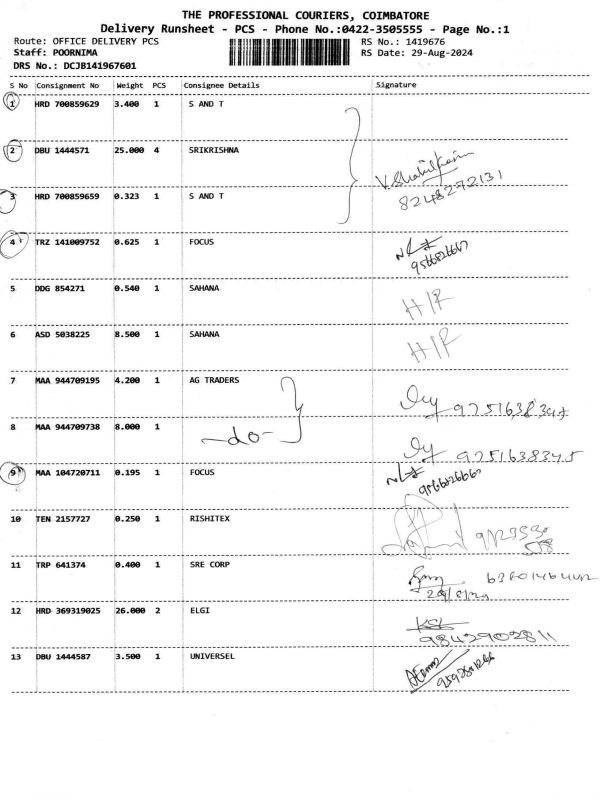 THE PROFESSIONAL COURIERS, COIMBATORE
Delivery Runsheet - PCS - Phone No.:0422-3505555 - Page No.:1
Route: OFFICE DELIVERY PCS RS No.: 1419676
Staff: POORNIMA RS Date: 29-Aug-2024
DRS No.: DCJB141967601
S No Consignment No Weight PCS Consignee Details Signature
1 HRD 700859629 3.400 1 S AND T
2 DBU 1444571 25.000 4 SRIKRISHNA
8248272131
3 HRD 700859659 0.323 1 S AND T
4 TRZ 141009752 0.625 1 FOCUS
5 DDG 854271 0.540 1 SAHANA H/R
6 ASD 5038225 8.500 1 SAHANA H/R
7 MAA 944709195 4.200 1 AG TRADERS
8 MAA 944709738 8.000 1 -do- 9251638345
9 MAA 104720711 0.195 1 FOCUS
10 TEN 2157727 0.250 1 RISHITEX
11 TRP 641374 0.400 1 SRE CORP
29/8/24
12 HRD 369319025 26.000 2 ELGI
9842902811
13 DBU 1444587 3.500 1 UNIVERSEL